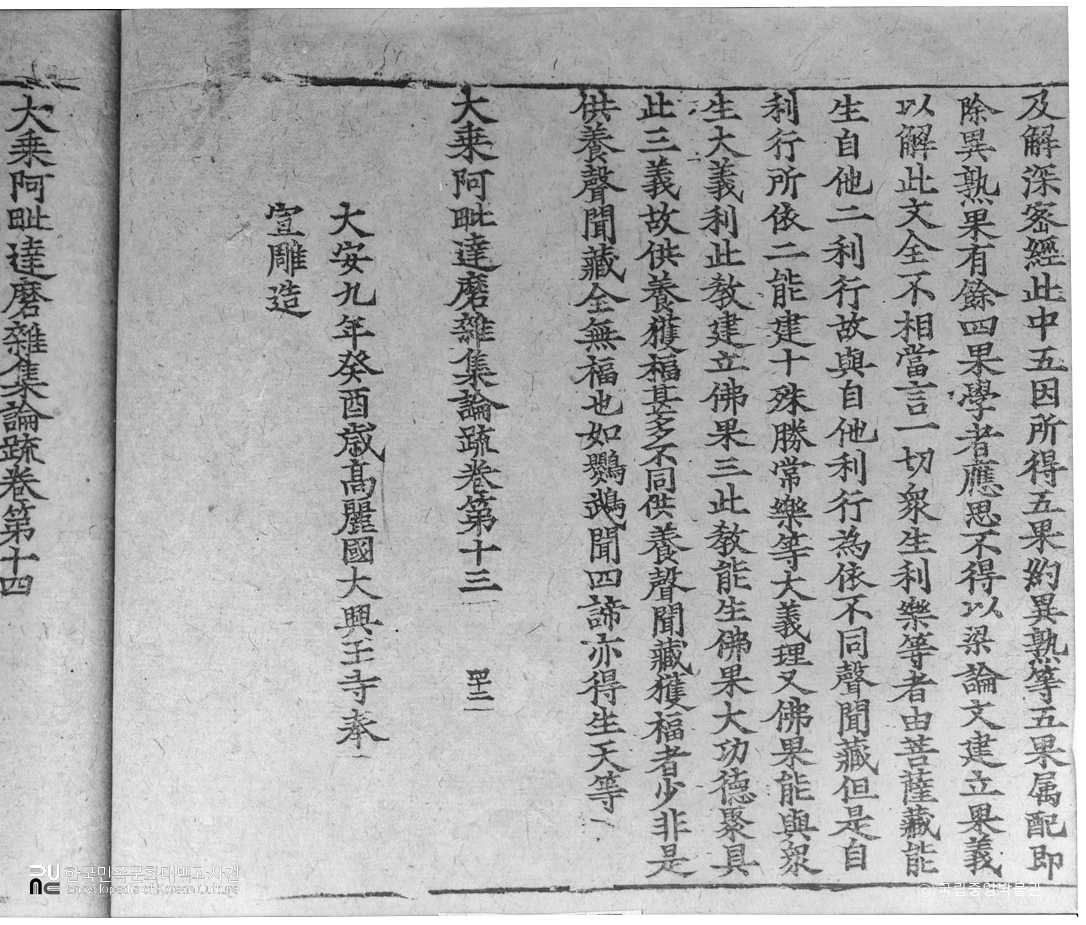 及解深密經此中五因所得五果約異熟等五果属配即
除異熟果有餘四果學者應思不得以梁論文建立果義
以解此文全不相當言一切衆生利樂等者由菩薩藏能
生自他二利行故與自他利行為依不同聲聞藏但是自
利行所依二能建十殊勝常樂等大義理又佛果能與衆
生大義利此教建立佛果三此教能生佛果大功德聚具
此三義故供養獲福甚多不同供養聲聞藏獲福者少非是
供養聲聞藏全無福也如鸚鵡聞四諦亦得生天等
大乗阿毗達磨雜集論疏卷第十三
大安九年癸酉歲髙麗國大興王寺奉
宣雕造
大乗阿毗達磨雜集論疏卷第十四
한국민족문화대백과사전
Encyclopedia of Korean Culture
© 국립중앙박물관